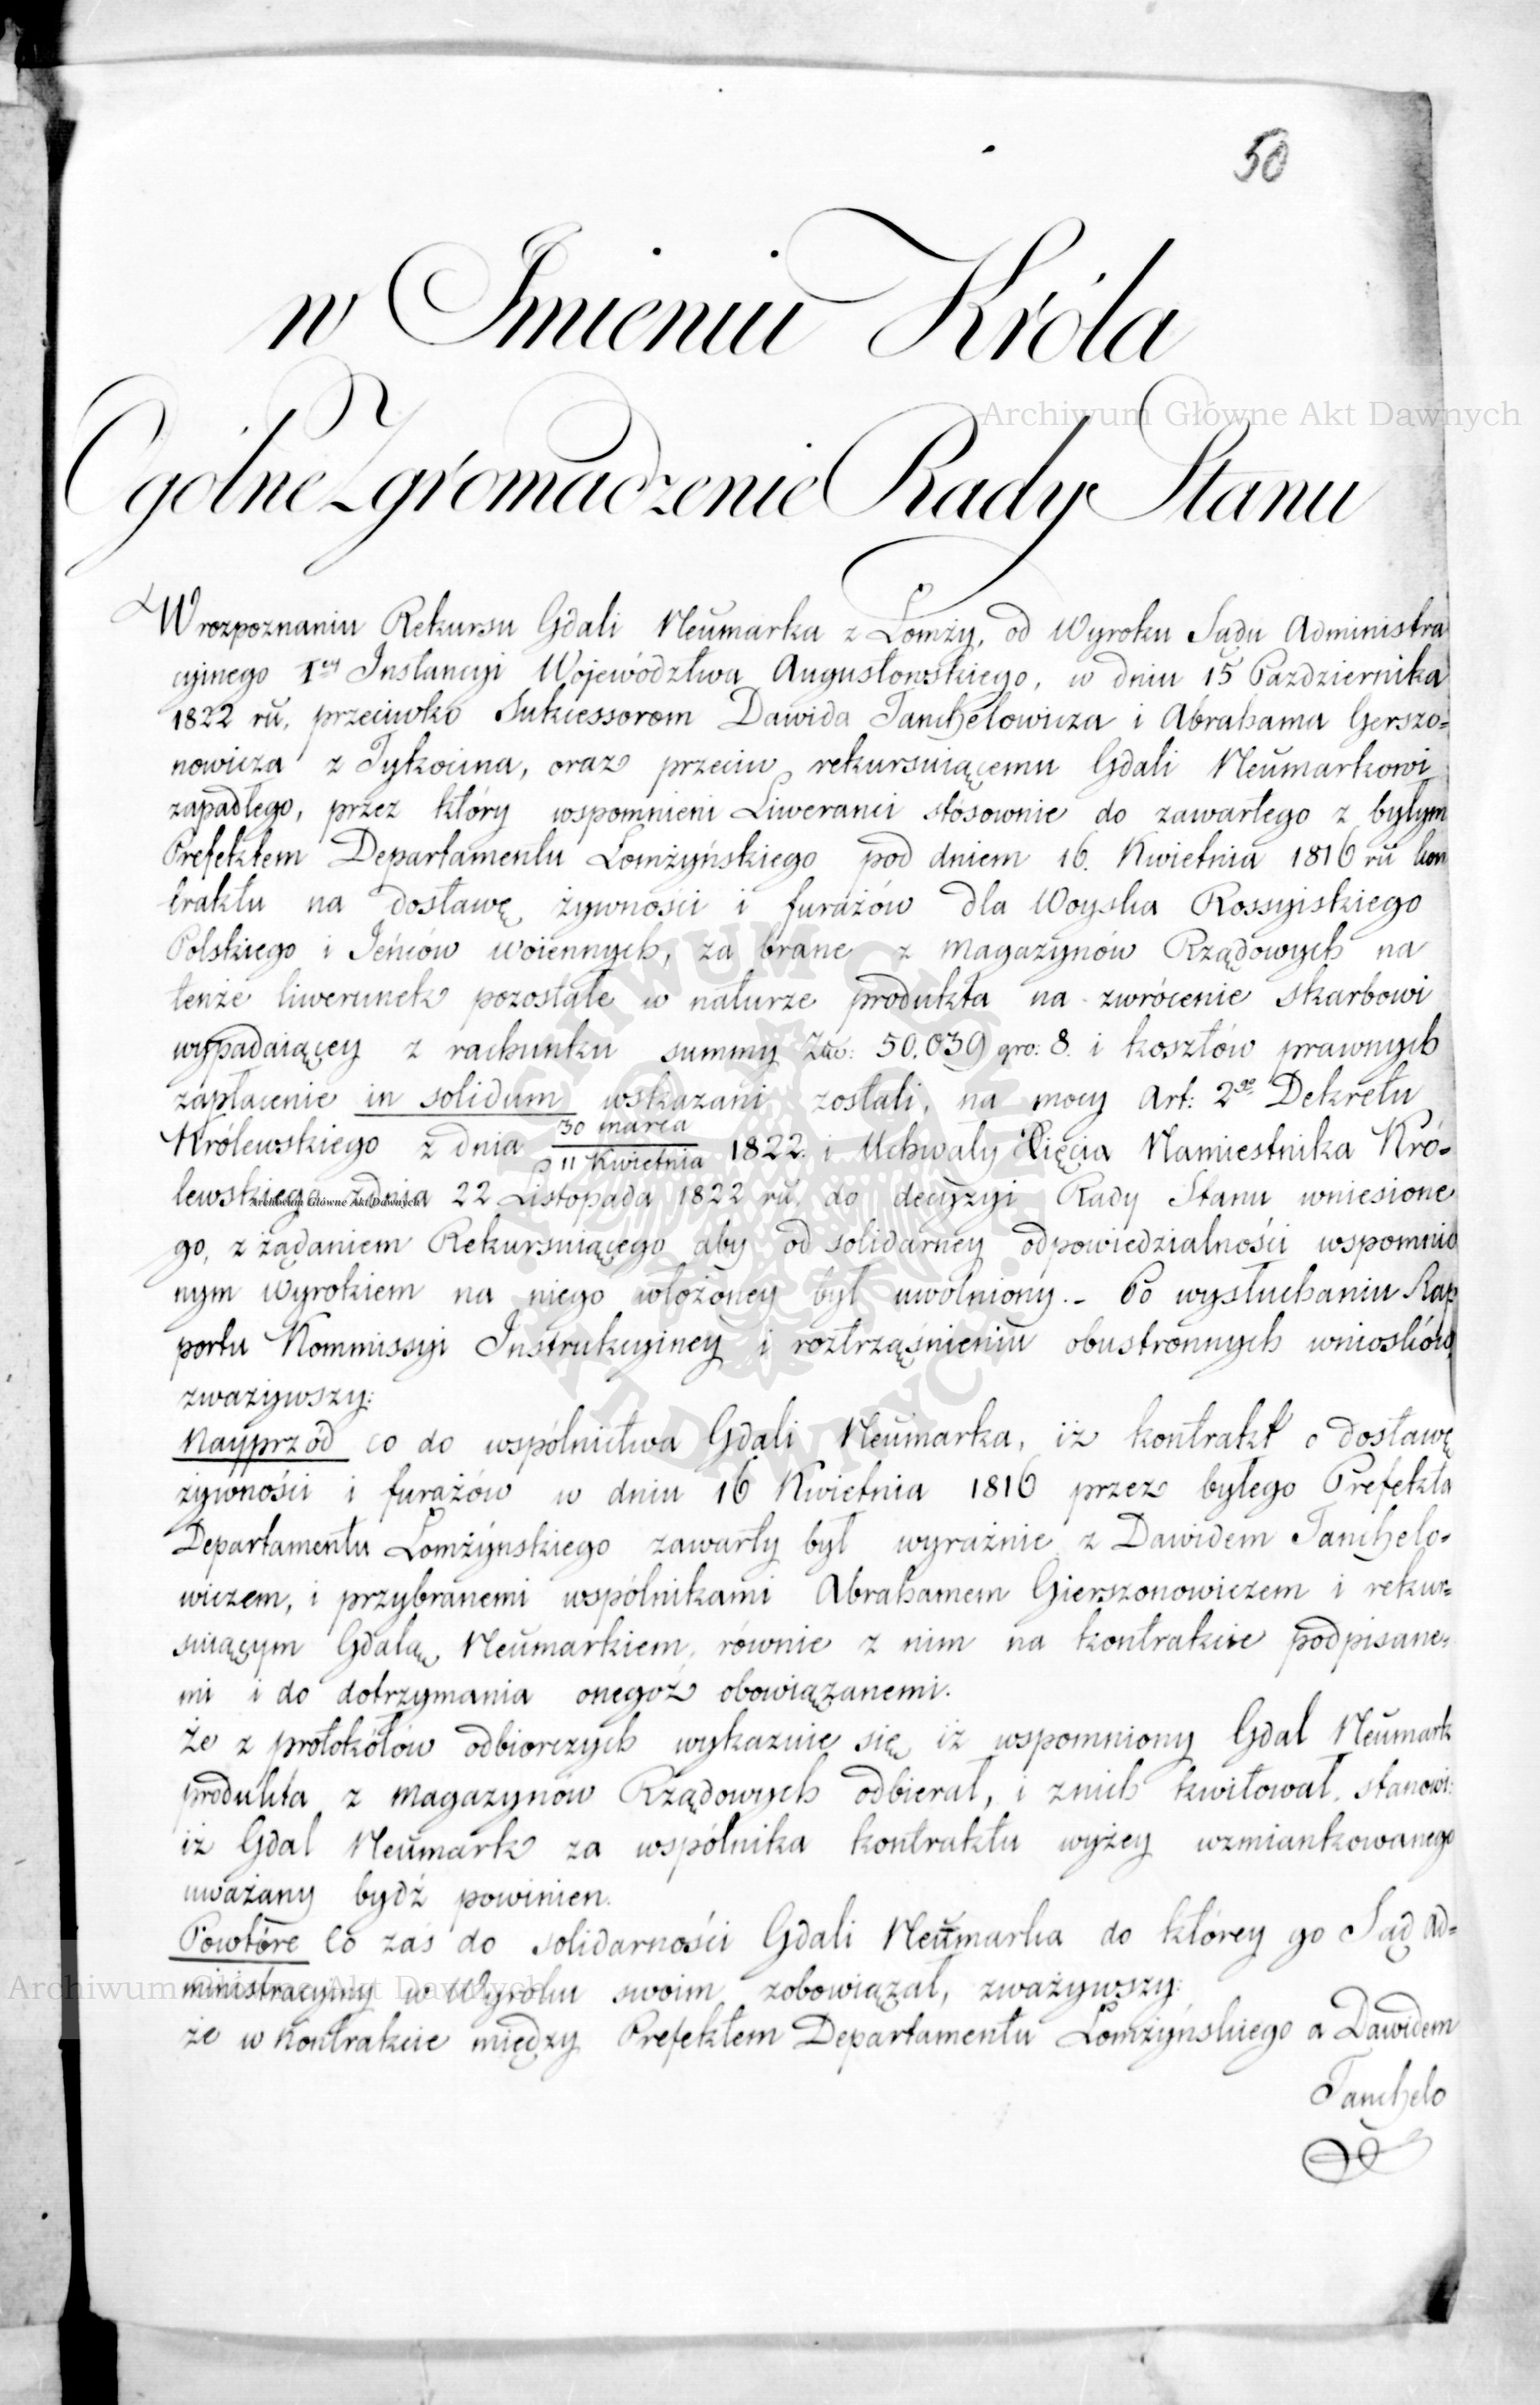 50
w Imieniu Króla
Ogólne Zgromadzenie Rady Stanu
W rozpoznaniu Rekursu Gdali Neumarka z Łomży, od Wyroku Sądu Administra
cyinego 1ey Instancyi Województwa Augustowskiego, w dniu 15 Pazdziernika
1822 ru, przeciwko Sukcessorom Dawida Tanchelowicza i Abrahama Gerszo=
nowicza z Tykocina, oraz przeciw rekursuiącemu Gdali Neumarkowi
zapadłego, przez który wspomnieni Liweranci stósownie do zawartego z byłym
Prefektem Departamentu Łomżyńskiego pod dniem 16. Kwietnia 1816 ru kon
traktu na dostawę żywności i furażów dla Woyska Rossyiskiego
Polskiego i Jeńców woiennych, za brane z magazynów Rządowych na
tenże liwerunek pozostałe w naturze produkta na zwrócenie skarbowi
wypadaiącey z rachunku summy Złł: 50.039 gro: 8. i kosztów prawnych
zapłacenie in solidum wskazani zostali, na mocy Art: 2go Dekretu
Królewskiego z dnia 30 marca / 11 Kwietnia 1822. i Uchwały Xięcia Namiestnika Kró-
lewskiego z dnia 22 Listopada 1822 ru. do decyzyi Rady Stanu wniesione
go, z żądaniem Rekursuiącego aby od solidarney odpowiedzialności wspomnio
nym Wyrokiem na niego włożoney był uwolniony.- Po wysłuchaniu Rap
portu Kommissyi Instrukcyiney i roztrząśnieniu obustronnych wniosków,
zważywszy:
Nayprzód co do wspólnictwa Gdali Neumarka, iż kontrakt o dostawę
żywności i furażów w dniu 16 Kwietnia 1816 przez byłego Prefekta
Departamentu Łomżyńskiego zawarty był wyraźnie z Dawidem Tanchelo-
wiczem, i przybranemi wspólnikami Abrahamem Gierszonowiczem i rekur=
suiącym Gdalą Neumarkiem, równie z nim na kontrakcie podpisane-
mi i do dotrzymania onegoż obowiązanemi.
Że z protokółów odbiorczych wykazuie się iż wspomniony Gdal Neumark
produkta z magazynów Rządowych odbierał, i z nich kwitował, stanowi:
iż Gdal Neumark za wspólnika kontraktu wyżey wzmiankowanego
uważany bydź powinien.
Powtóre Co zaś do solidarności Gdali Neumarka do którey go Sąd Ad=
ministracyiny w Wyroku swoim zobowiązał, zważywszy:
że w Kontrakcie między Prefektem Departamentu Łomżyńskiego a Dawidem
Tanchelo
Archiwum Główne Akt Dawnych
Archiwum Główne Akt Dawnych
Archiwum Główne Akt Dawnych
ARCHIWUM GŁÓWNE AKT DAWNYCH